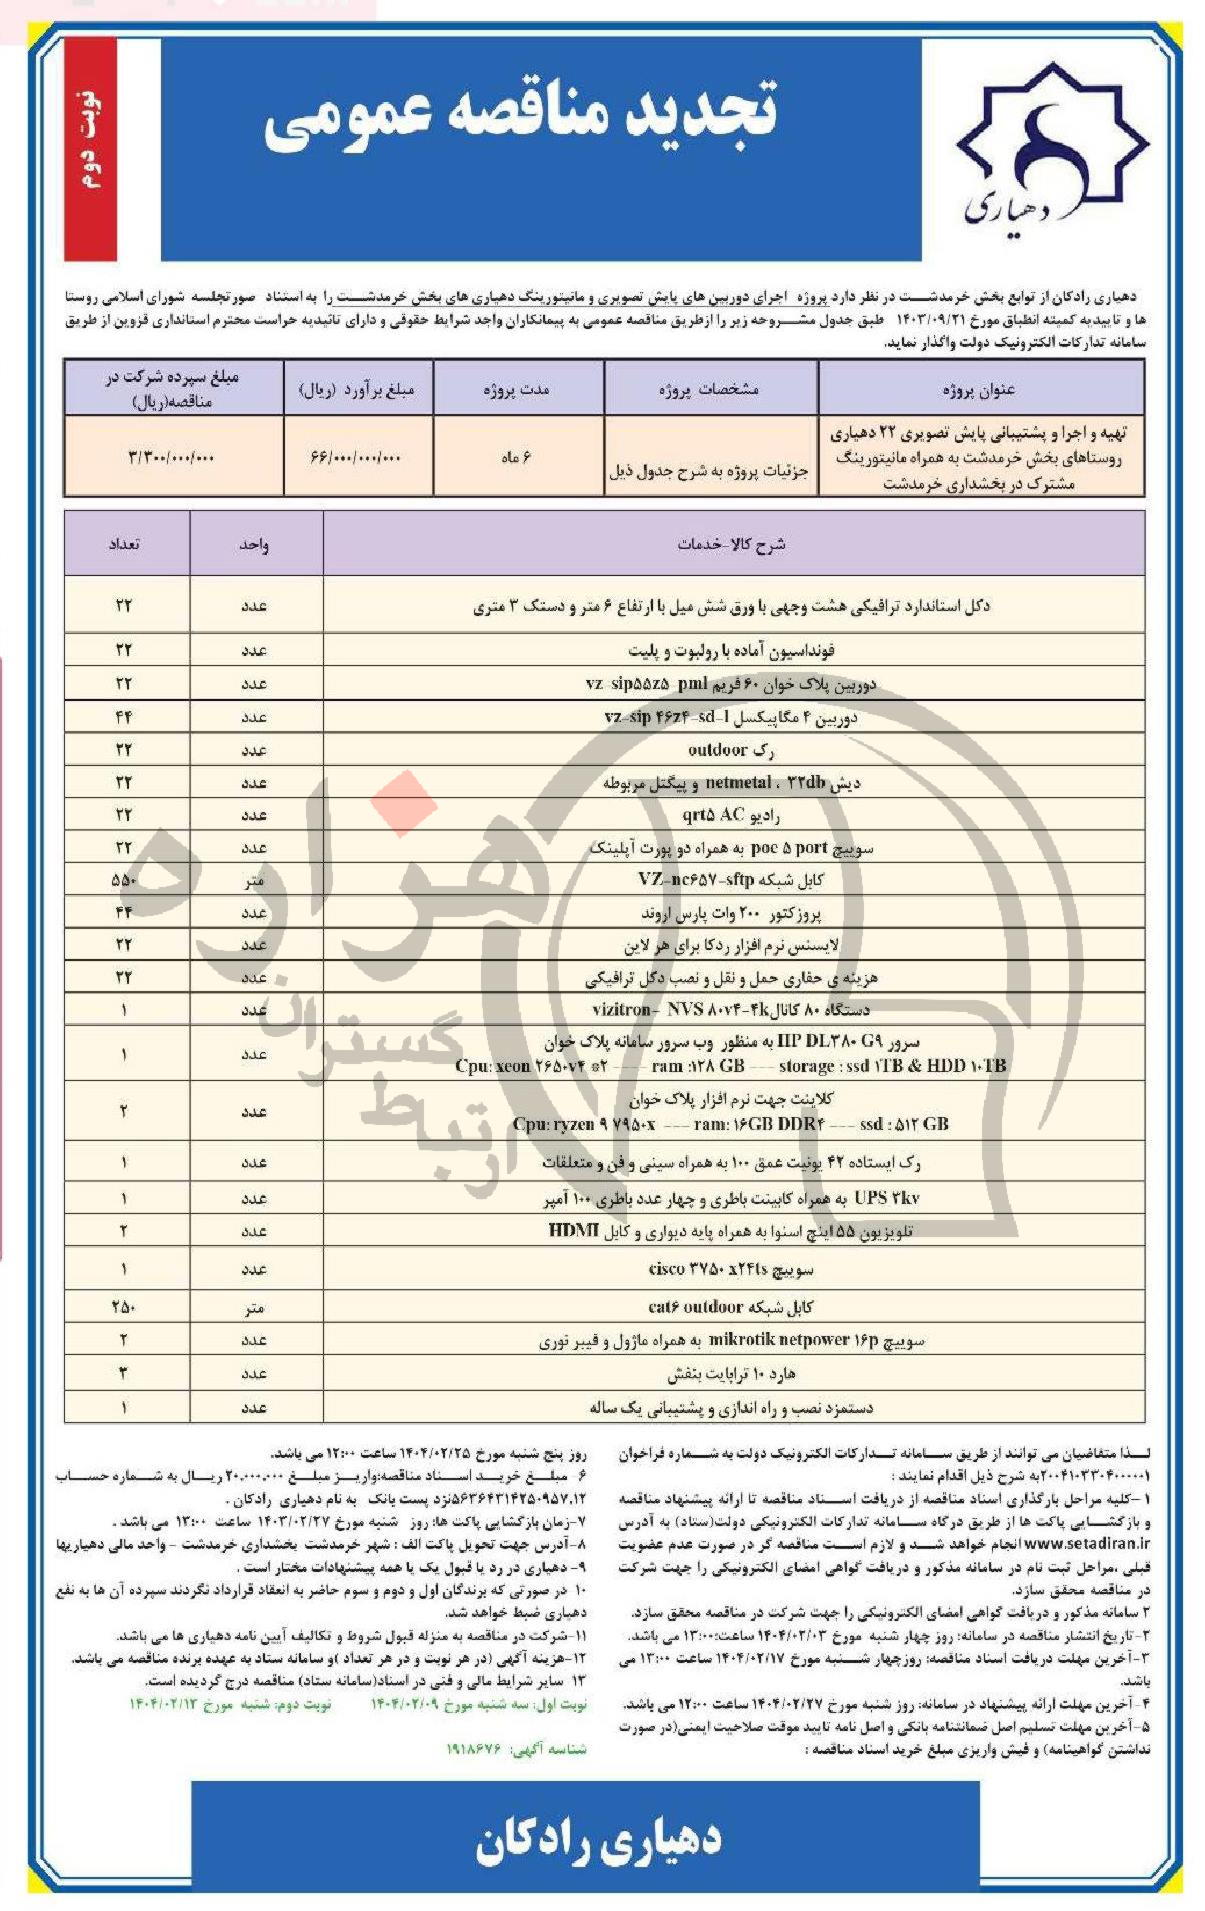 تجدید مناقصه عمومی
نوبت دوم
دهیاری
دهیاری رادکان از توابع بخش خرمدشت در نظر دارد پروژه اجرای دوربین های پایش تصویری و مانیتورینگ دهیاری های بخش خرمدشت را به استناد صورتجلسه شورای اسلامی روستا
ها و تاییدیه کمیته انطباق مورخ ۱۴۰۳/۰۹/۲۱ طبق جدول مشروحه زیر را ازطریق مناقصه عمومی به پیمانکاران واجد شرایط حقوقی و دارای تائیدیه حراست محترم استانداری قزوین از طریق
سامانه تدارکات الکترونیک دولت واگذار نماید.
عنوان پروژه مشخصات پروژه مدت پروژه مبلغ برآورد (ریال) مبلغ سپرده شرکت در
مناقصه(ریال)
تهیه و اجرا و پشتیبانی پایش تصویری ۲۲ دهیاری
روستاهای بخش خرمدشت به همراه مانیتورینگ
مشترک در بخشداری خرمدشت
جزئیات پروژه به شرح جدول ذیل ۶ ماه ۶۶/۰۰۰/۰۰۰/۰۰۰ ۳/۳۰۰/۰۰۰/۰۰۰
شرح کالا-خدمات واحد تعداد
دکل استاندارد ترافیکی هشت وجهی با ورق شش میل با ارتفاع ۶ متر و دستک ۳ متری عدد ۲۲
فونداسیون آماده با رولبوت و پلیت عدد ۲۲
دوربین پلاک خوان ۶۰ فریم vz-sip۵۵z۵-pml عدد ۲۲
دوربین ۴ مگاپیکسل vz-sip ۴۶z۴-sd-l عدد ۴۴
رک outdoor عدد ۲۲
دیش netmetal ، ۳۳db و پیگتل مربوطه عدد ۲۲
رادیو qrt۵ AC عدد ۲۲
سوییچ poe ۵ port به همراه دو پورت آپلینک عدد ۲۲
کابل شبکه VZ-nc۶۵۷-sftp متر ۵۵۰
پروژکتور ۲۰۰ وات پارس اروند عدد ۴۴
لایسنس نرم افزار ردکا برای هر لاین عدد ۲۲
هزینه ی حفاری حمل و نقل و نصب دکل ترافیکی عدد ۲۲
دستگاه ۸۰ کانال vizitron- NVS ۸۰v۴-۴k عدد ۱
سرور HP DL۳۸۰ G۹ به منظور وب سرور سامانه پلاک خوان
Cpu: xeon ۲۶۵۰v۴ *۲ ---- ram :۱۲۸ GB --- storage : ssd ۱TB & HDD ۱۰TB عدد ۱
کلاینت جهت نرم افزار پلاک خوان
Cpu: ryzen ۹ ۷۹۵۰x --- ram: ۱۶GB DDR۴ --- ssd : ۵۱۲ GB عدد ۲
رک ایستاده ۴۲ یونیت عمق ۱۰۰ به همراه سینی و فن و متعلقات عدد ۱
UPS ۳kv به همراه کابینت باطری و چهار عدد باطری ۱۰۰ آمپر عدد ۱
تلویزیون ۵۵ اینچ اسنوا به همراه پایه دیواری و کابل HDMI عدد ۲
سوییچ cisco ۳۷۵۰ x۲۴ts عدد ۱
کابل شبکه cat۶ outdoor متر ۲۵۰
سوییچ mikrotik netpower ۱۶p به همراه ماژول و فیبر نوری عدد ۲
هارد ۱۰ ترابایت بنفش عدد ۳
دستمزد نصب و راه اندازی و پشتیبانی یک ساله عدد ۱
لـذا متقاضیان می توانند از طریق سامانه تدارکات الکترونیک دولت به شماره فراخوان
۲۰۰۴۱۰۳۳۰۴۰۰۰۰۰۱به شرح ذیل اقدام نمایند :
۱-کلیه مراحل بارگذاری اسناد مناقصه از دریافت اسناد مناقصه تا ارائه پیشنهاد مناقصه
و بازگشایی پاکت ها از طریق درگاه سامانه تدارکات الکترونیکی دولت(ستاد) به آدرس
www.setadiran.ir انجام خواهد شد و لازم است مناقصه گر در صورت عدم عضویت
قبلی ،مراحل ثبت نام در سامانه مذکور و دریافت گواهی امضای الکترونیکی را جهت شرکت
در مناقصه محقق سازد.
۲ سامانه مذکور و دریافت گواهی امضای الکترونیکی را جهت شرکت در مناقصه محقق سازد.
۲-تاریخ انتشار مناقصه در سامانه: روز چهار شنبه مورخ ۱۴۰۴/۰۲/۰۳ ساعت:۱۳:۰۰ می باشد.
۳-آخرین مهلت دریافت اسناد مناقصه: روزچهار شنبه مورخ ۱۴۰۴/۰۲/۱۷ ساعت ۱۳:۰۰ می
باشد.
۴-آخرین مهلت ارائه پیشنهاد در سامانه: روز شنبه مورخ ۱۴۰۴/۰۲/۲۷ ساعت ۱۲:۰۰ می باشد.
۵-آخرین مهلت تسلیم اصل ضمانتنامه بانکی و اصل نامه تایید موقت صلاحیت ایمنی(در صورت
نداشتن گواهینامه) و فیش واریزی مبلغ خرید اسناد مناقصه :
روز پنج شنبه مورخ ۱۴۰۴/۰۲/۲۵ ساعت ۱۲:۰۰ می باشد.
۶- مبلغ خرید اسناد مناقصه:واریز مبلغ ۲۰.۰۰۰.۰۰۰ ریال به شماره حساب
نزد پست بانک به نام دهیاری رادکان .
۷-زمان بازگشایی پاکت ها: روز شنبه مورخ ۱۴۰۳/۰۲/۲۷ ساعت ۱۳:۰۰ می باشد .
۸-آدرس جهت تحویل پاکت الف : شهر خرمدشت بخشداری خرمدشت - واحد مالی دهیاریها
۹- دهیاری در رد یا قبول یک یا همه پیشنهادات مختار است .
۱۰ در صورتی که برندگان اول و دوم و سوم حاضر به انعقاد قرارداد نگردند سپرده آن ها به نفع
دهیاری ضبط خواهد شد.
۱۱-شرکت در مناقصه به منزله قبول شروط و تکالیف آیین نامه دهیاری ها می باشد.
۱۲-هزینه آگهی (در هر نوبت و در هر تعداد )و سامانه ستاد به عهده برنده مناقصه می باشد.
۱۳ سایر شرایط مالی و فنی در اسناد(سامانه ستاد) مناقصه درج گردیده است.
نوبت اول: سه شنبه مورخ ۱۴۰۴/۰۲/۰۹ نوبت دوم: شنبه مورخ ۱۴۰۴/۰۲/۱۳
شناسه آگهی: ۱۹۱۸۶۷۶
دهیاری رادکان
هزاره
گستران
ارتباط